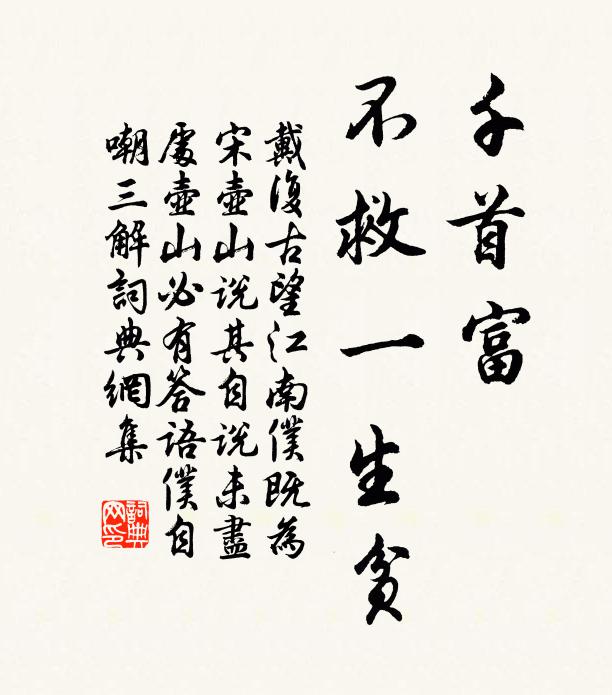 千首富
不救一生貧
戴復古望江南僕既為
宋壺山說其自說未盡
處壺山必有答語僕自
嘲三解詞典網集
詞典
网印